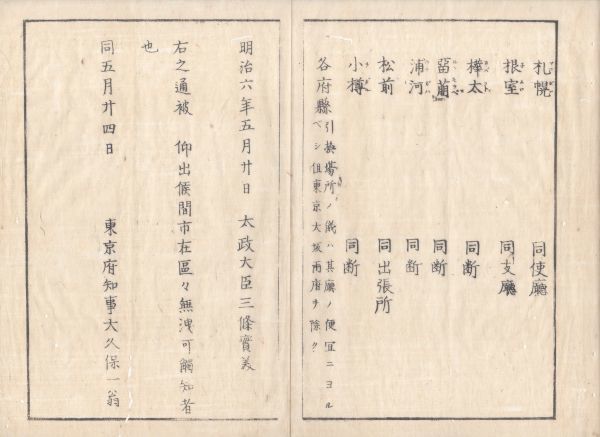 札幌 同使廳
根室 同支廳
樺太 同断
留蘭 同断
浦河 同断
松前 同出張所
小樽 同断
各府縣 引換場所ノ儀ハ其廳ノ便宜ニヨル
ベシ但東京大坂兩府ヲ除ク
明治六年五月廿日 太政大臣三條實美
右之通被 仰出候間市在區々無洩可觸知者
也
同五月廿四日 東京府知事大久保一翁